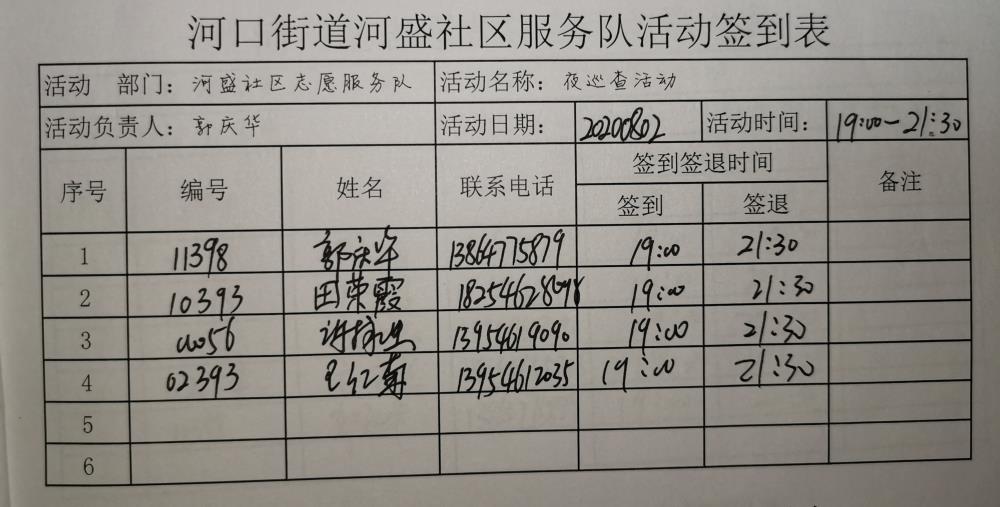 河口街道河盛社区服务队活动签到表
活动 部门：河盛社区志愿服务队 活动名称：夜巡查活动
活动负责人：郭庆华 活动日期：20200802 活动时间：19:00-21:30
序号 编号 姓名 联系电话 签到签退时间 备注
签到 签退
1 11398 郭庆华 13864775879 19:00 21:30
2 10393 田荣霞 18254628098 19:00 21:30
3 13954619090 19:00 21:30
4 02393 13954612035 19:00 21:30
5
6